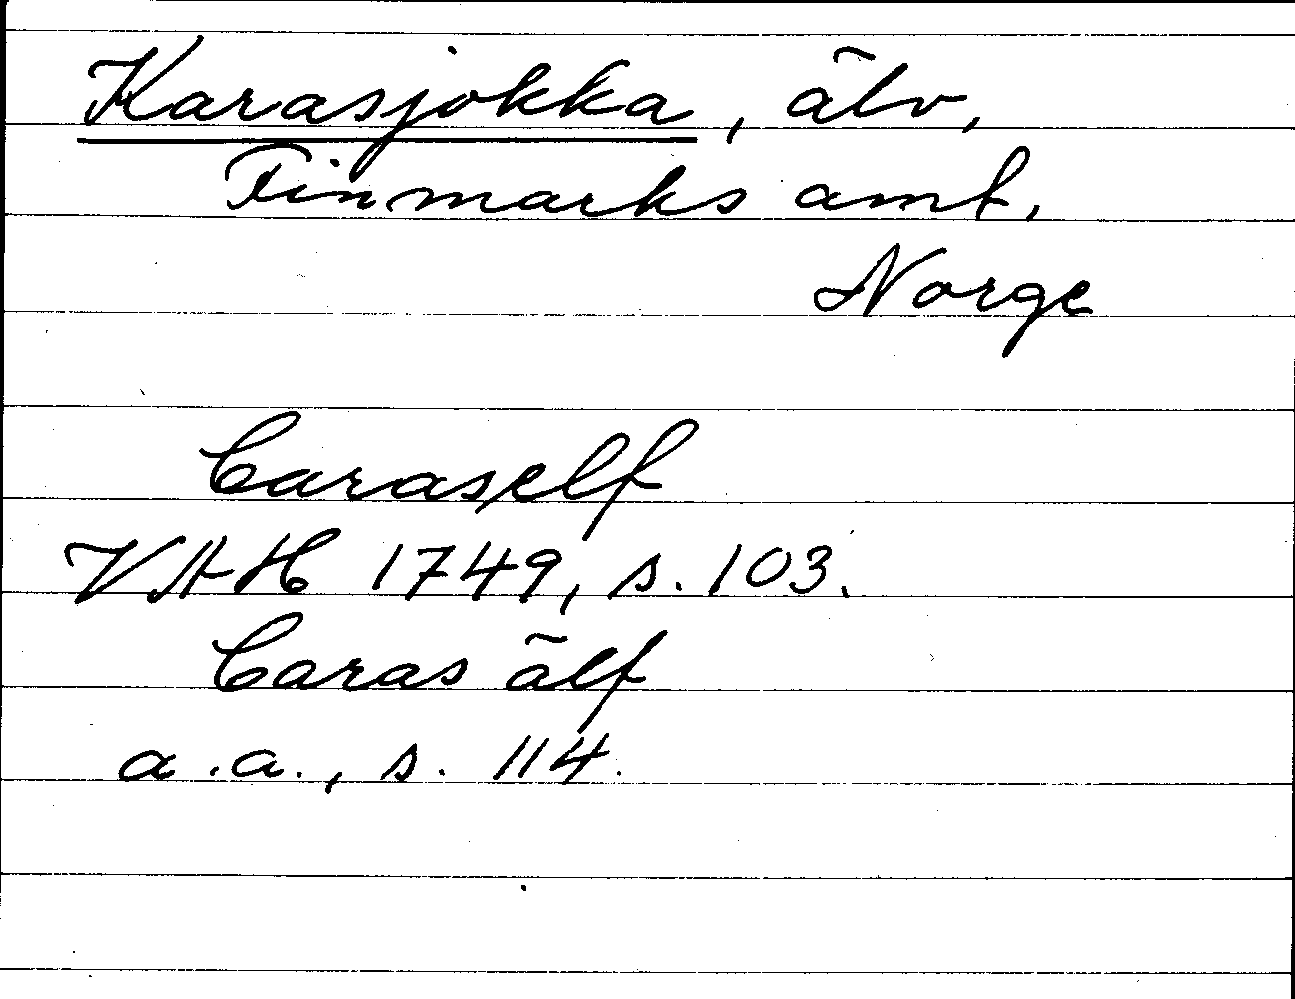 Karasjokka, älv,
Finmarks amt,
Norge
Caraself
VAH 1749, s. 103.
Caras älf
a.a., s. 114.